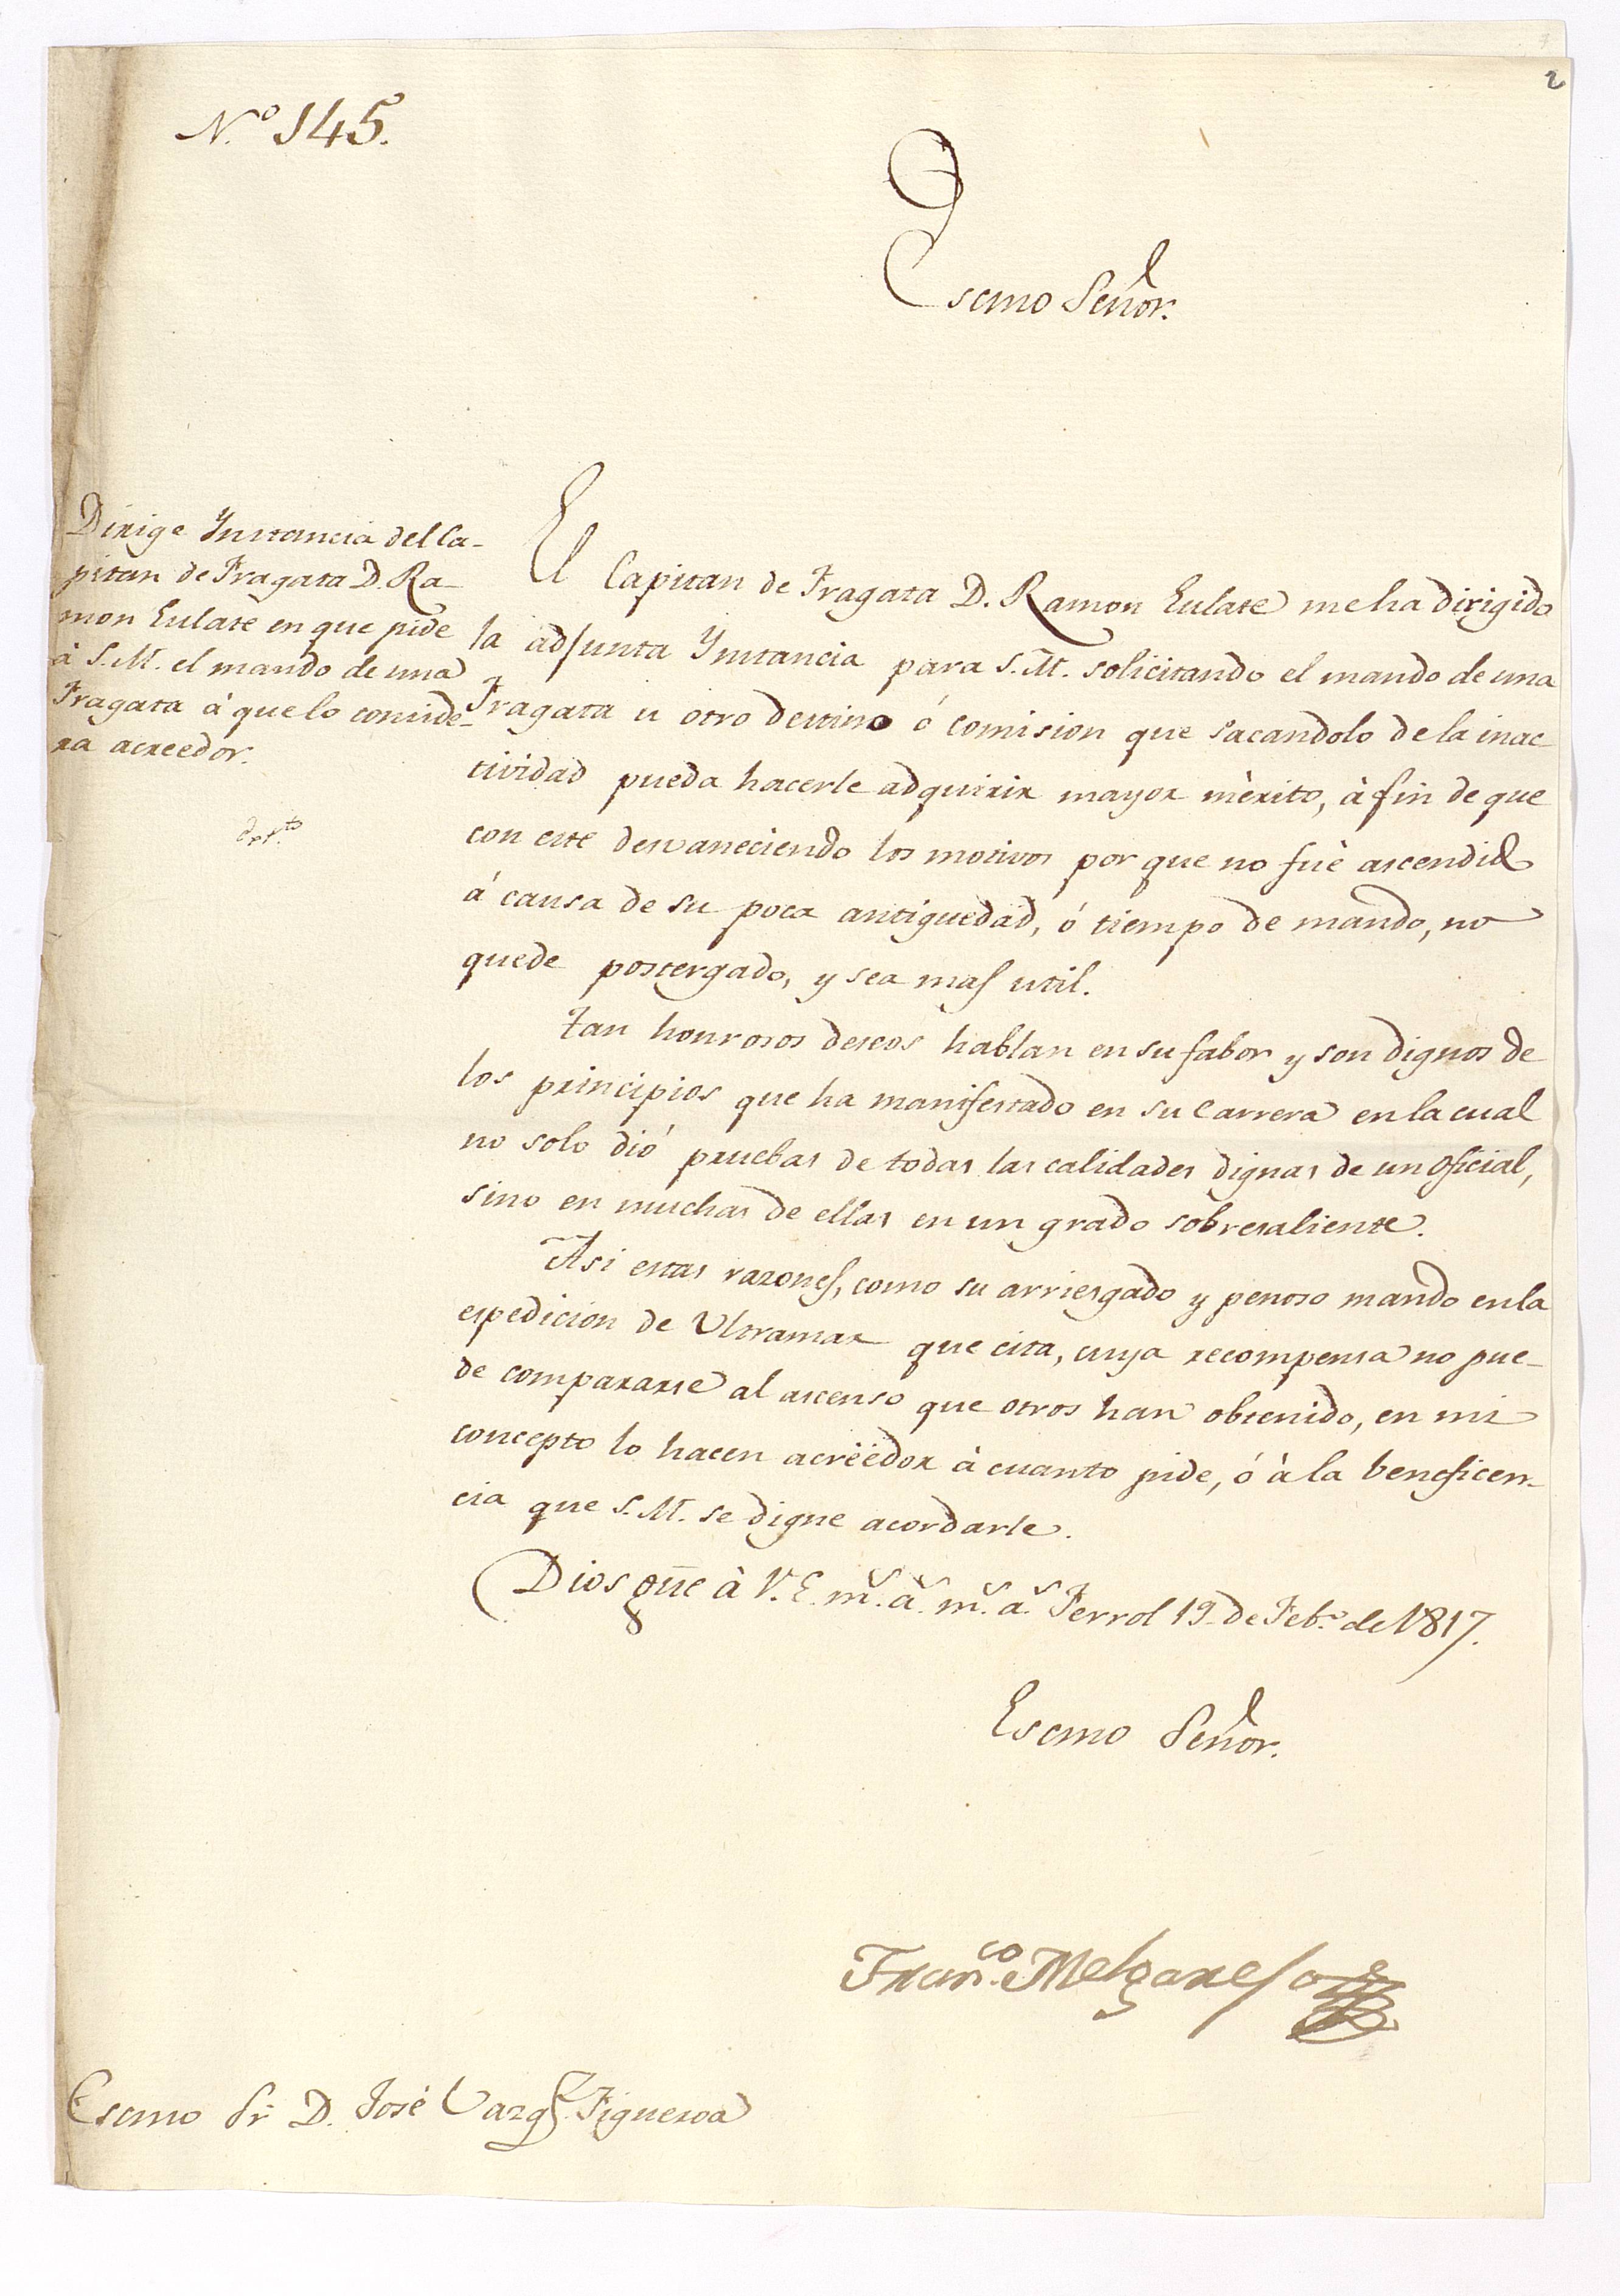 2
N.º 145.
Escmo Señor.
Dirige Ynstancia del Ca-
pitan de Fragata D. Ra-
mon Eulate en que pide
à S. M. el mando de una
Fragata à que lo conside-
ra acreedor.
El Capitan de Fragata D. Ramon Eulate me ha dirigido
la adjunta Ynstancia para S. M. solicitando el mando de una
Fragata u otro destino ó comision que sacandolo de la inac-
tividad pueda hacerle adquirir mayor mèrito, à fin de que
con este desvaneciendo los motivos por que no fuè ascendido
á causa de su poca antiguedad, ó tiempo de mando, no
quede postergado, y sea mas util.
Tan honrosos deseos hablan en su fabor y son dignos de
los principios que ha manifestado en su Carrera en la cual
no solo dió pruebas de todas las calidades dignas de un Oficial,
sino en muchas de ellas en un grado sobresaliente.
Asi estas razones, como su arriesgado y penoso mando en la
espedicion de Ultramar que cita, cuya recompensa no pue-
de compararse al ascenso que otros han obtenido, en mi
concepto lo hacen acrëedor à cuanto pide, ó à la beneficen-
cia que S. M. se digne acordarle.
Dios gue à V. E. m.s a.s m.s a.s Ferrol 19 de Feb.o de 1817.
Escmo Señor.
Fran.co Melgarejo
Escmo Sr D. José Vazq.z Figueroa